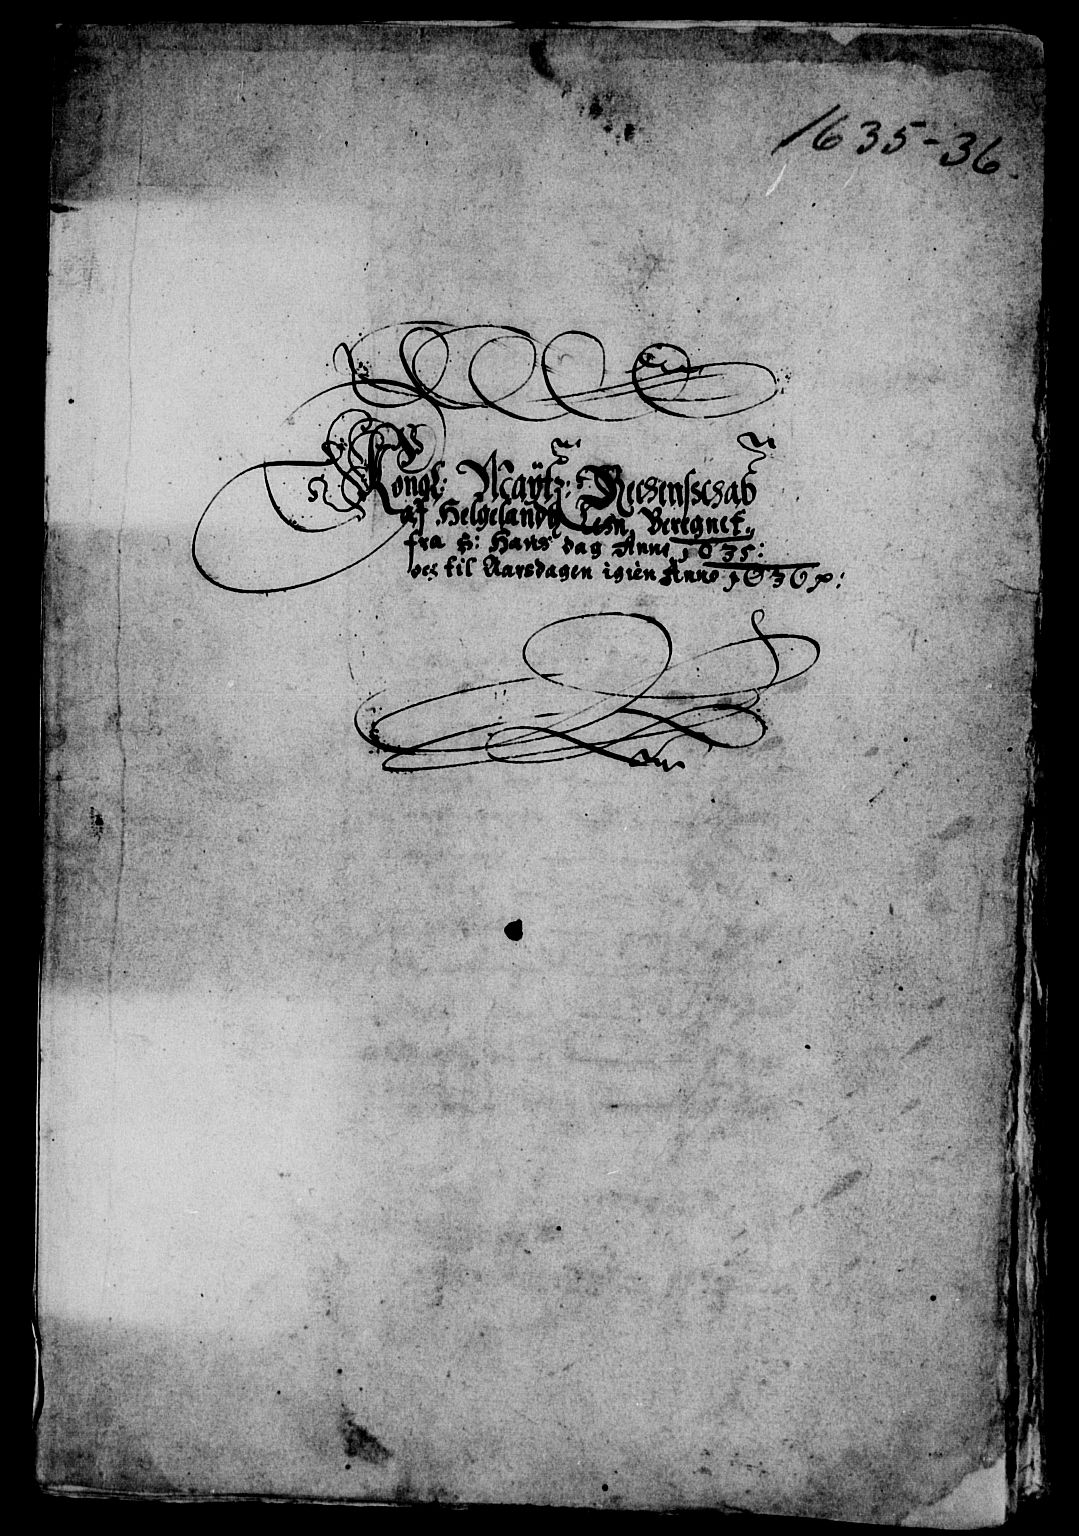 1635-36.
Kongl: Maÿtz: Rechenschab
af Helgelandz Lehn Beregnet,
fra S: Hans dag Anno 1635:
och til Aarsdagen igien Anno 1636 p: